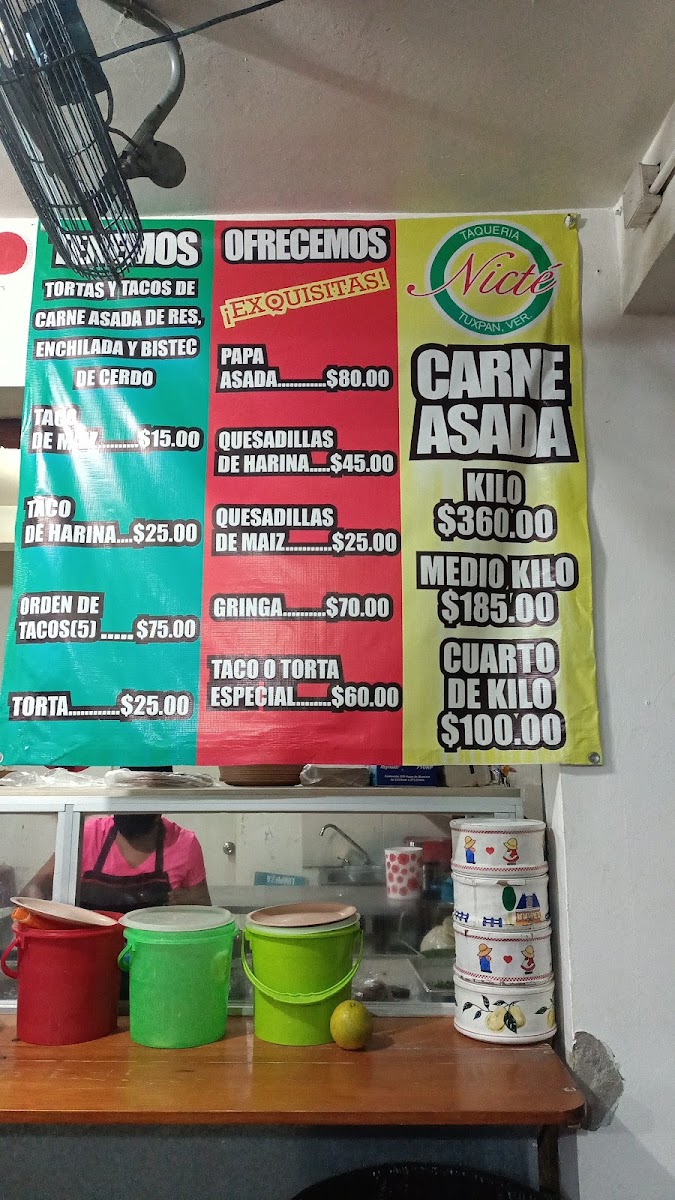 TENEMOS
TORTAS Y TACOS DE
CARNE ASADA DE RES,
ENCHILADA Y BISTEC
DE CERDO
TACO
DE MAIZ..........$15.00
TACO
DE HARINA....$25.00
ORDEN DE
TACOS(5) .....$75.00
TORTA............$25.00
OFRECEMOS
¡EXQUISITAS!
PAPA
ASADA............$80.00
QUESADILLAS
DE HARINA.....$45.00
QUESADILLAS
DE MAIZ...........$25.00
GRINGA..........$70.00
TACO O TORTA
ESPECIAL........$60.00
TAQUERIA
Nicté
TUXPAN, VER.
CARNE
ASADA
KILO
$360.00
MEDIO KILO
$185.00
CUARTO
DE KILO
$100.00